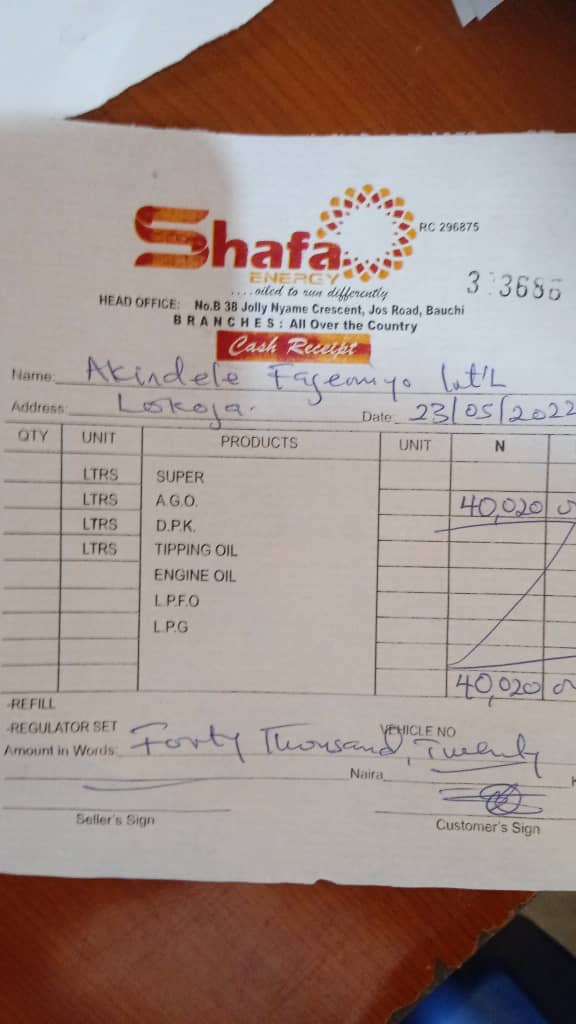 Shafa
ENERGY
RC 296875
....oiled to run differently
HEAD OFFICE: No.B 38 Jolly Nyame Crescent, Jos Road, Bauchi
BRANCHES: All Over the Country
Cash Receipt
Name: Akindele Int'L
Address: Lokoja.
Date: 23/05/2022
QTY UNIT PRODUCTS UNIT N
LTRS SUPER
LTRS A.G.O. 40,020
LTRS D.P.K.
LTRS TIPPING OIL
ENGINE OIL
L.P.F.O
L.P.G
40,020
-REFILL
-REGULATOR SET VEHICLE NO
Amount in Words: Forty Thousand, Twenty
Naira
Seller's Sign Customer's Sign